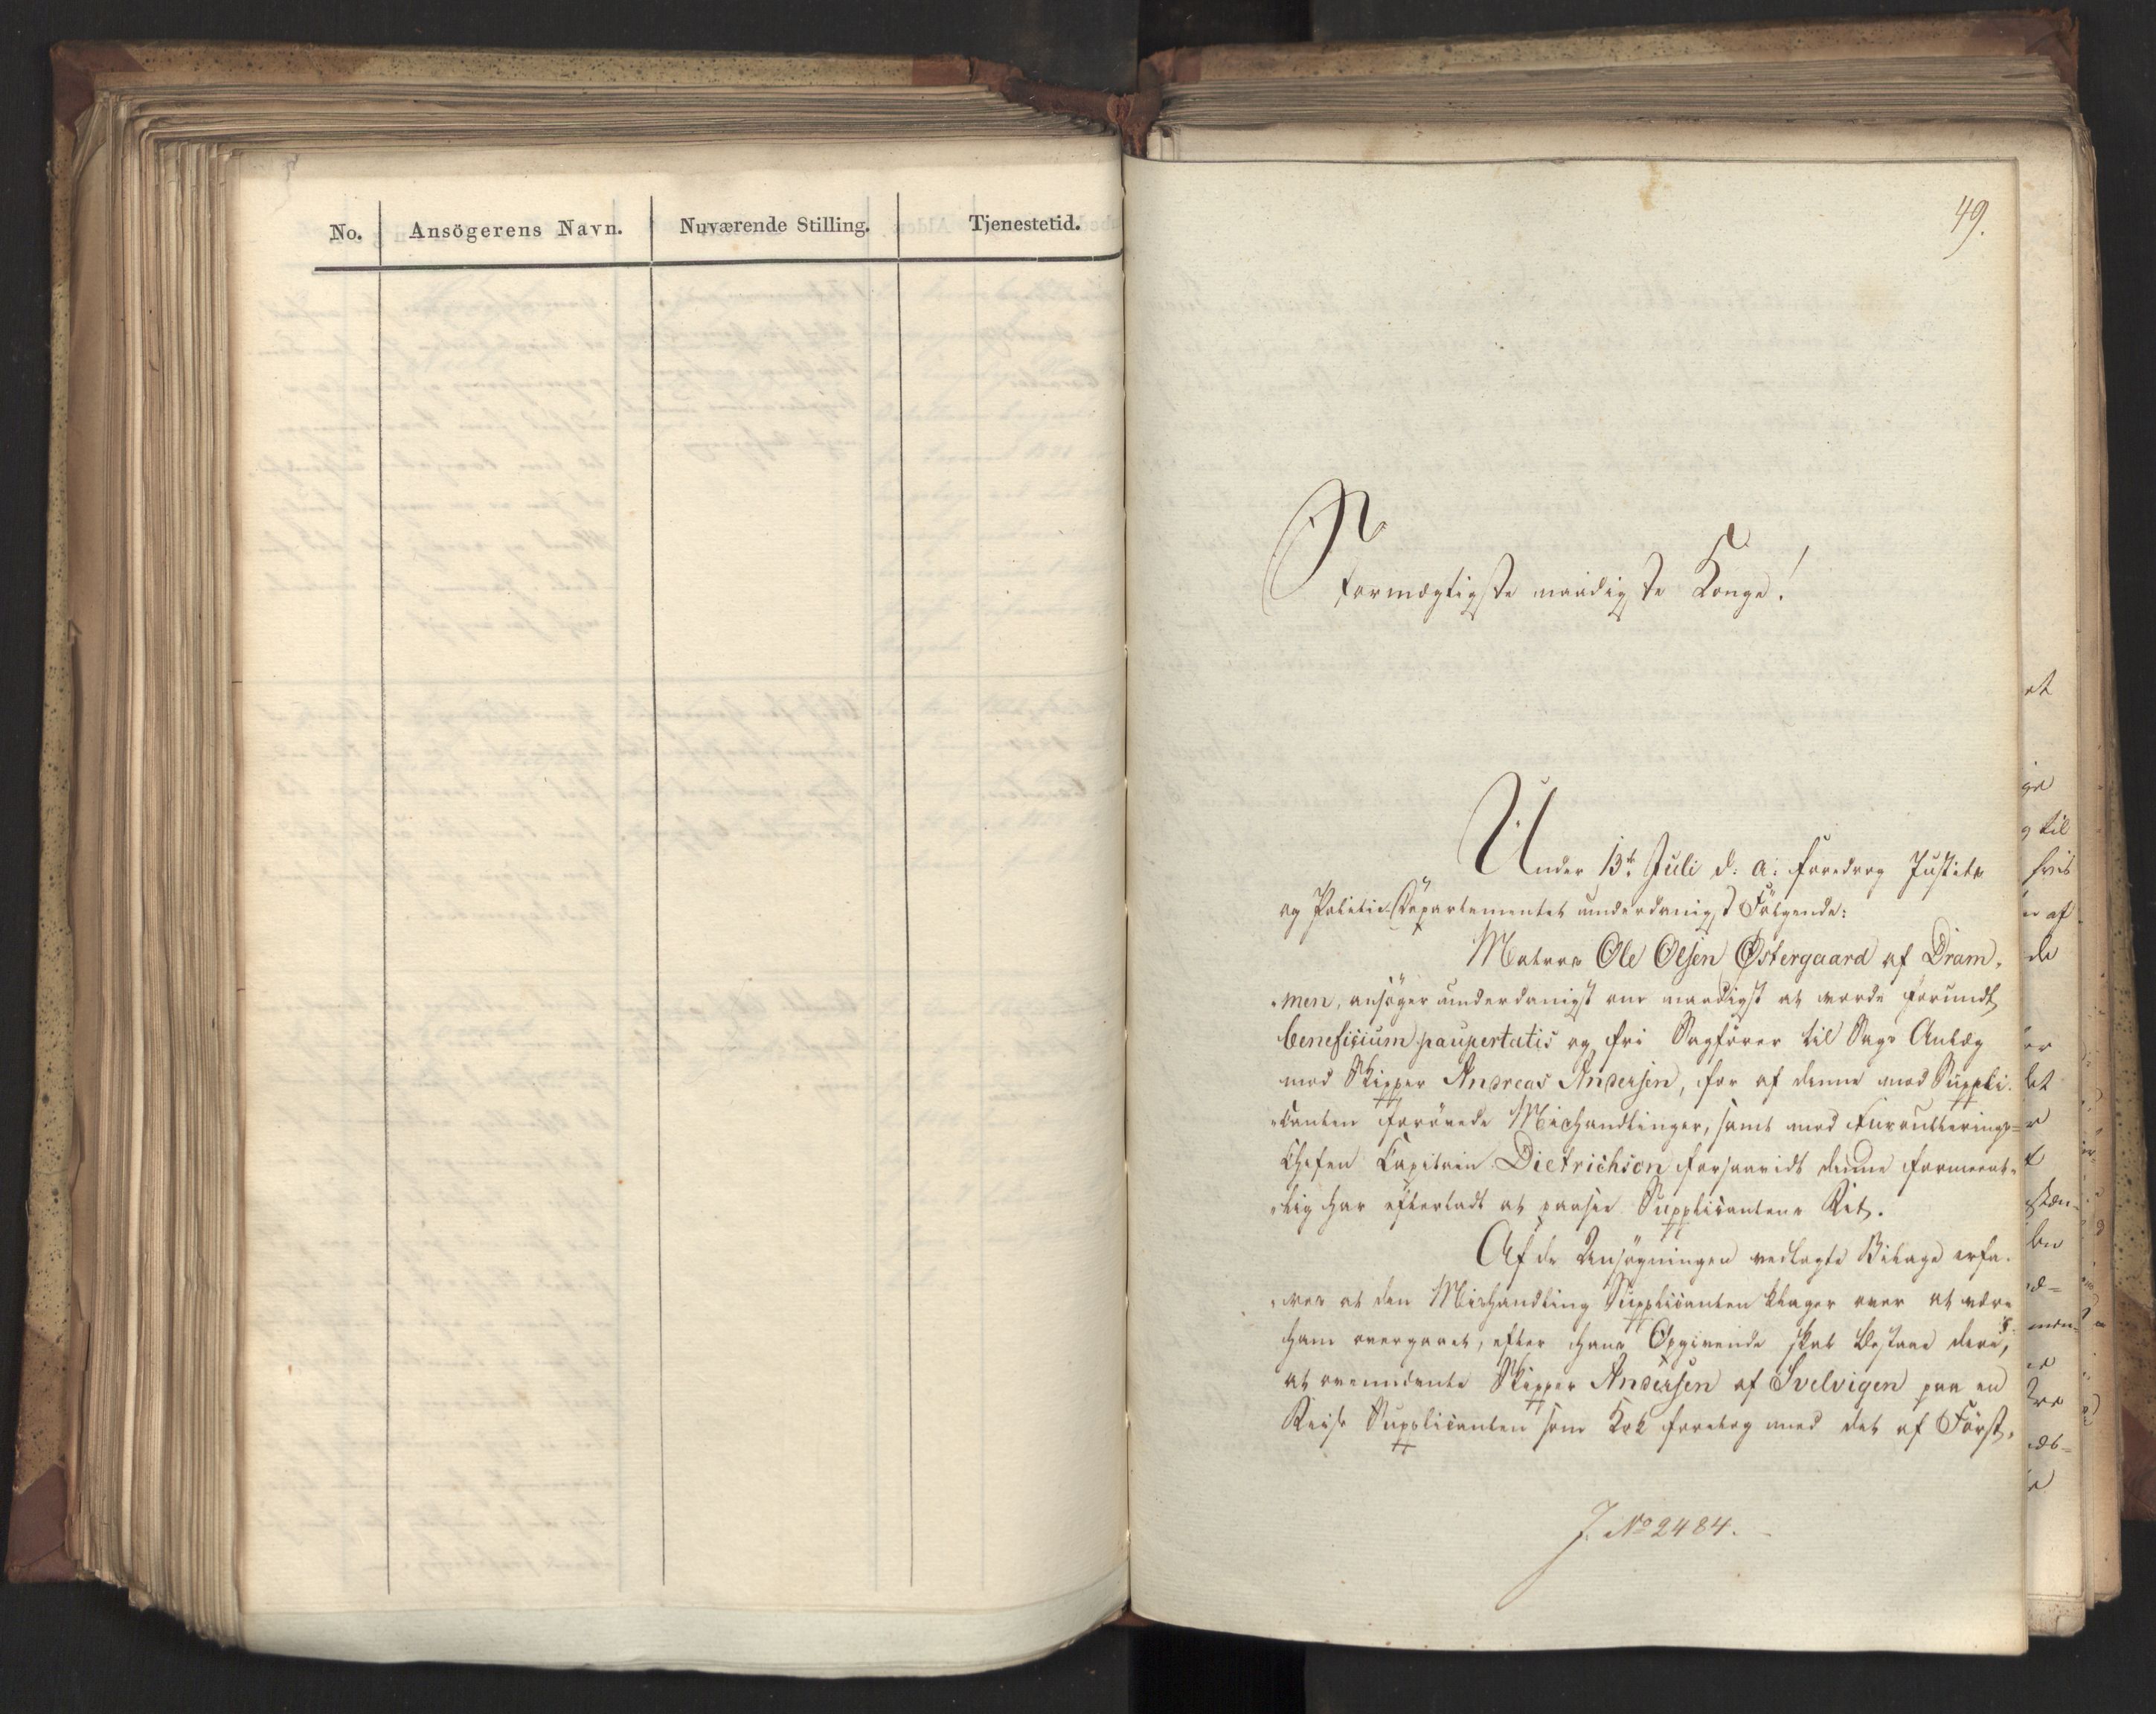 No.
Ansögerens Navn.
Nuværende Stilling.
Tjenestetid.
49.
Stormægtigste naadigste Konge!
Under 13de Juli d: a: foredrog Justits
og Politie-Departementet underdanigst Følgende:
Matros Ole Olsen Østergaard af Dram„
„men, ansøger underdanigst om naadigst at vorde forundt
beneficium paupertatis og fri Sagfører til Sags Anlæg
mod Skipper Andreas Andersen, for af denne mod Suppli„
„canten forøvede Mishandlinger, samt mod Enroullerings-
Chefen Capitain Dietrichson forsaavidt denne formeent„
„lig har efterladt at paasee Supplicantens Ret.
Af de Ansøgningen vedlagte Bilage erfa„
„res at den Mishandling Supplicanten klager over at være
ham overgaaet, efter hans Opgivende skal bestaae deri,
at ovennævnte Skipper Andersen af Svelvigen paa en
Reise Supplicanten som Kok foretog med det af Først„
J. No 2484.
et
ge
g til
hvis
er af
de
er
let